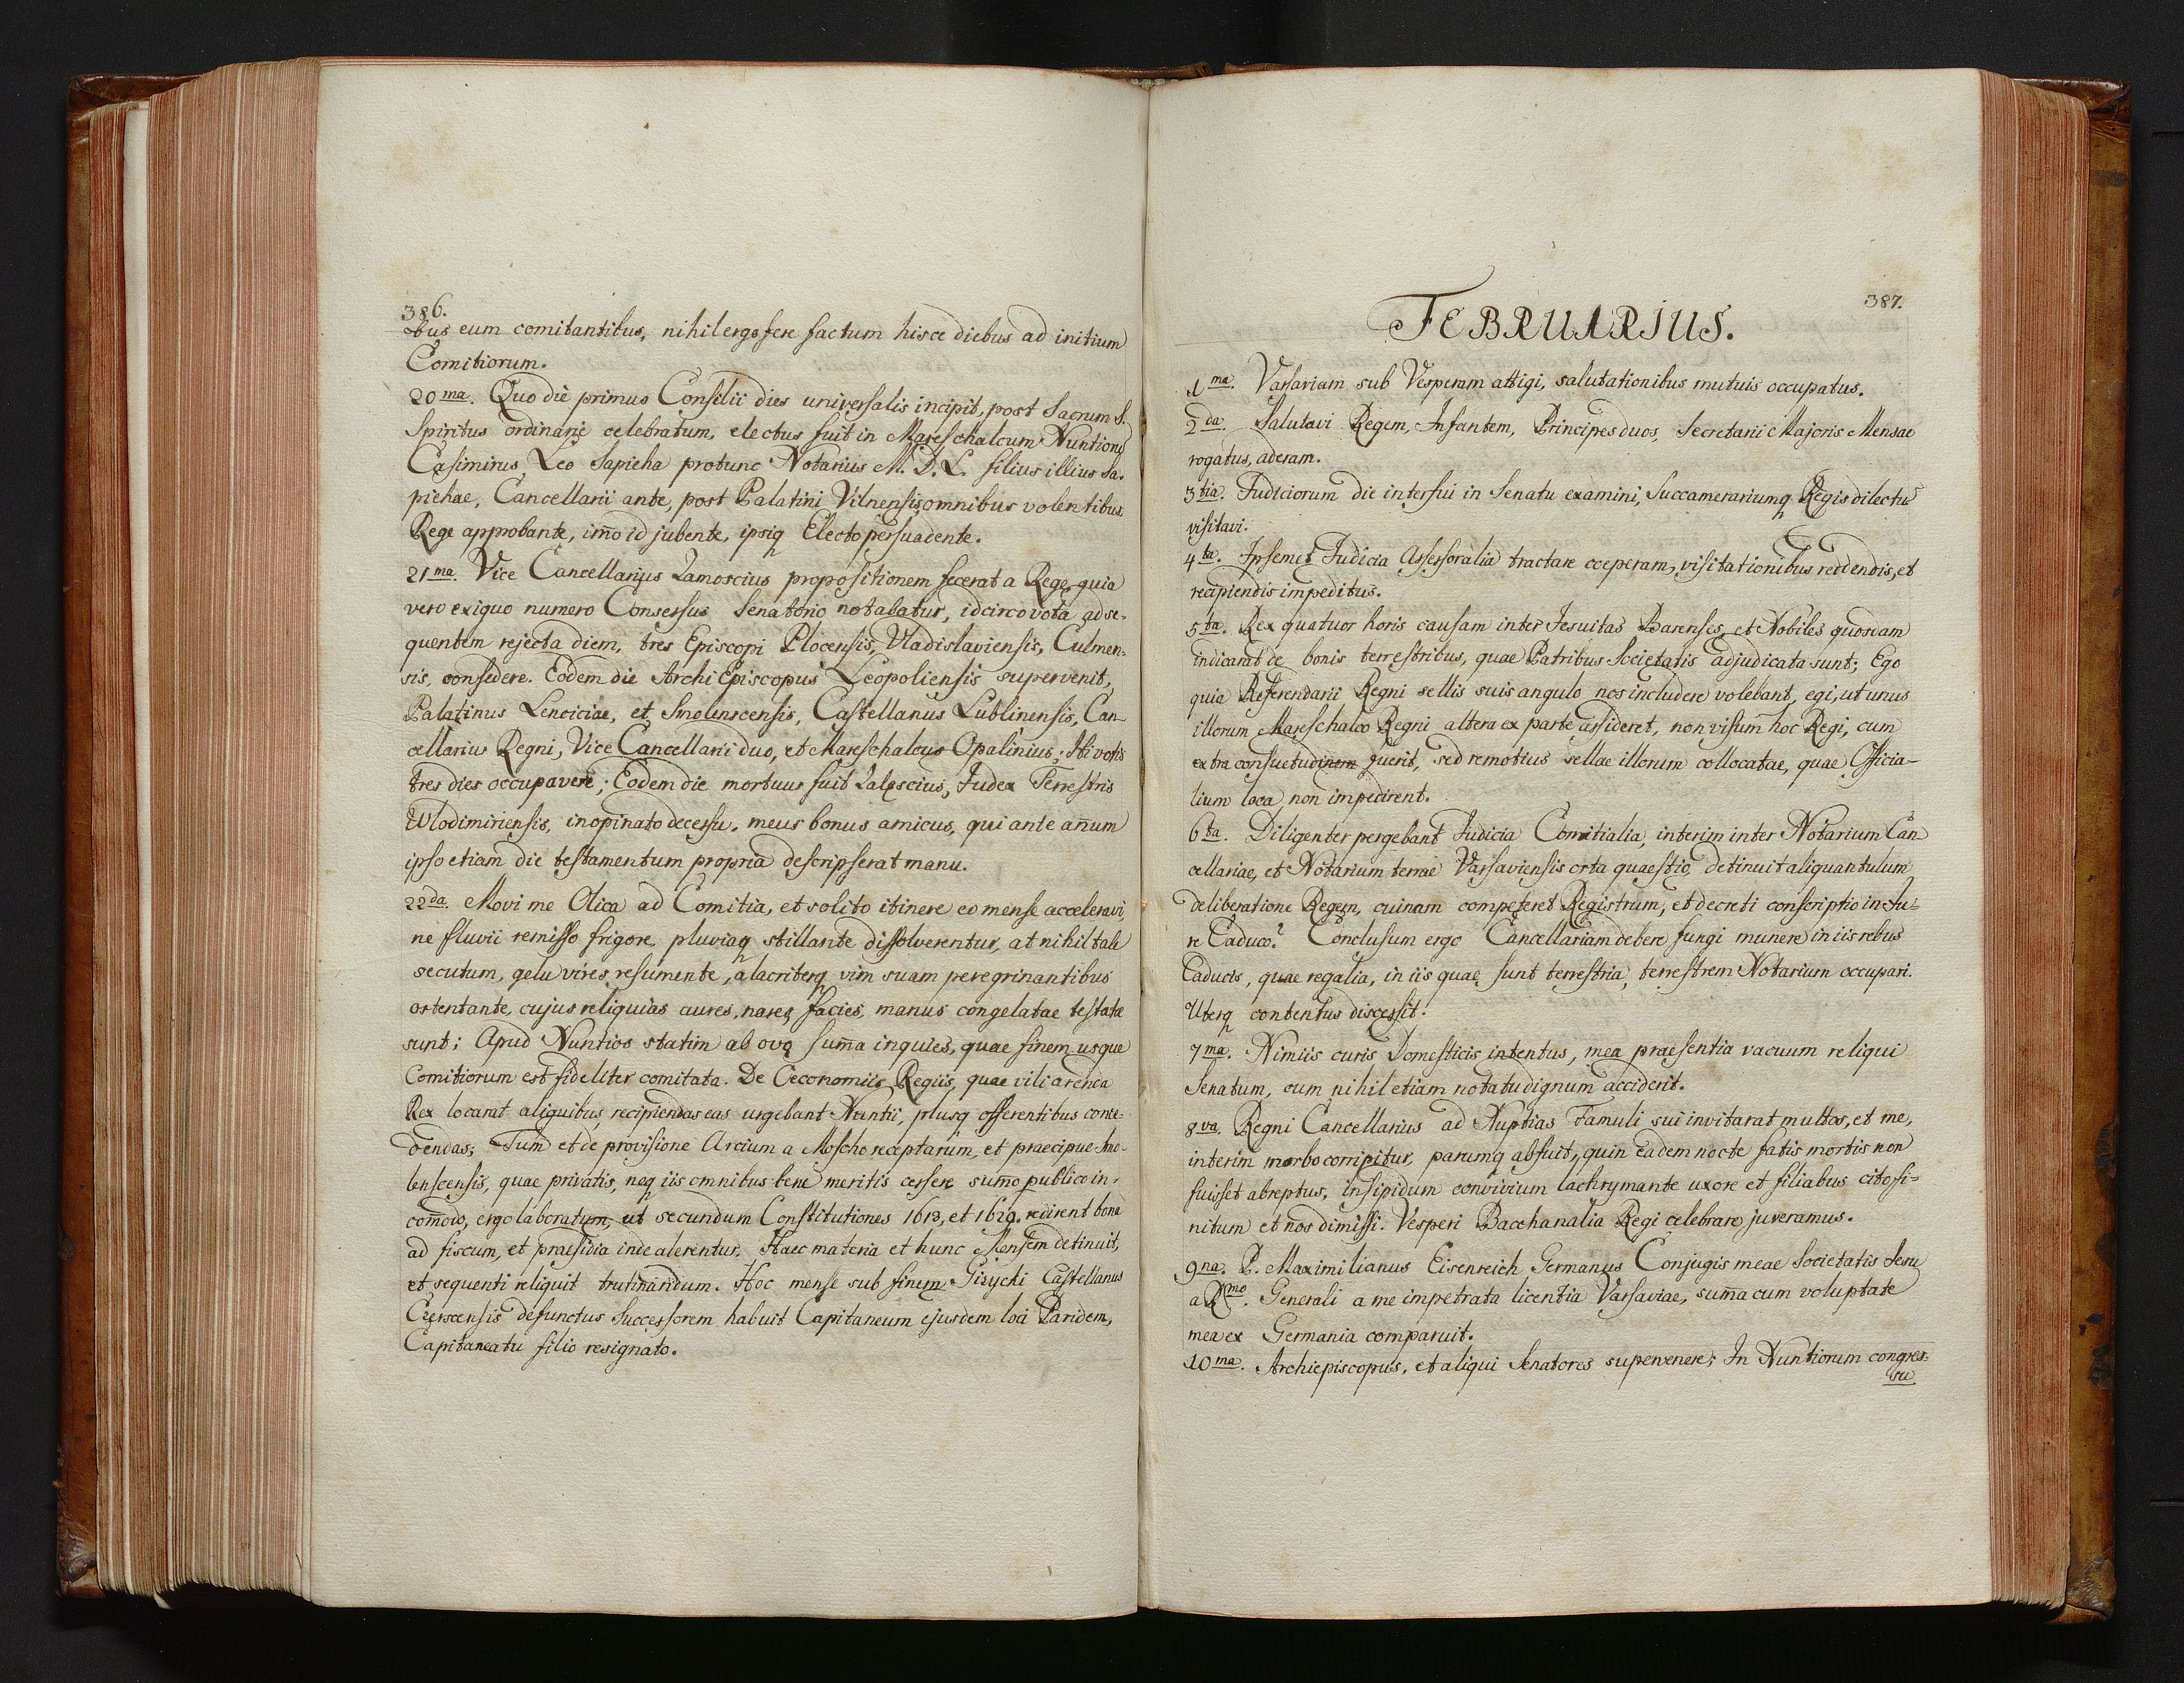 386.
bus eum comitantibus, nihil ergo fere factum hisce diebus ad initium
Comitiorum.
20ma. Quo die primus Consilii dies universalis incipit, post Sacrum S.
Spiritus ordinarie celebratum, electus fuit in Mareschalcum Nuntiorū
Casimirus Leo Sapieha protunc Notarius M. D. L. filius illius Sa-
piehae, Cancellarii ante, post Palatini Vilnensis, omnibus volentibus,
Rege approbante, im̄o id jubente, ipsiq Electo persuadente.
21ma. Vice Cancellarius Zamoscius propositionem fecerat a Rege, quia
vero exiguo numero Consessus Senatorio notabatur, idcirco vota ad se-
quentem rejecta diem, tres Episcopi Plocensis, Vladislaviensis, Culmen-
sis, consedere. Eodem die Archi Episcopus Leopoliensis supervenit,
Palatinus Lenciciae, et Smolenscensis, Castellanus Lublinensis, Can-
cellarius Regni, Vice Cancellarii duo, et Mareschalcus Opalinius; Hi votis
tres dies occupavere; Eodem die mortuus fuit Zalescius, Judex Terrestris
Wlodimiriensis, inopinato decessu, meus bonus amicus, qui ante an̄um
ipso etiam die testamentum propria descripserat manu.
22da. Movi me Olica ad Comitia, et solito itinere eo mense acceleravi,
ne fluvii remisso frigore, pluviaq stillante dissolverentur, at nihil tale
secutum, gelu vires resumente, alacriterq vim suam peregrinantibus
ostentante, cujus reliquias aures, nares, facies, manus congelatae testatae
sunt; Apud Nuntios statim ab ovo sum̄a inquies, quae finem usque
Comitiorum est fideliter comitata. De Oeconomiis Regiis, quae vili arenda
Rex locarat aliquibus, recipiendas eas urgebant Nuntii, plusq offerentibus conce-
dendas; Tum et de provisione Arcium a Moscho receptarum, et praecipue Smo-
lenscensis, quae privatis, neq iis omnibus bene meritis cessere sum̄o publico in-
com̄odo, ergo laboratum, ut secundum Constitutiones 1613, et 1629. redirent bona
ad fiscum, et praesidia inde alerentur, Haec materia et hunc Mensem detinuit,
et sequenti reliquit trutinandum. Hoc mense sub finem Gizycki Castellanus
Czerscensis defunctus Successorem habuit Capitaneum ejusdem loci Paridem,
Capitaneatu filio resignato.
387.
FEBRUARIUS.
1ma. Varsaviam sub Vesperam attigi, salutationibus mutuis occupatus.
2da. Salutavi Regem, Infantem, Principes duos, Secretarii Majoris Mensae
rogatus, aderam.
3tia. Judiciorum die interfui in Senatu examini, Succamerariumq Regis dilectū
visitavi.
4ta. Ipsemet Judicia Assessoralia tractare coeperam, visitationibus reddendis, et
recipiendis impeditus.
5ta. Rex quatuor horis causam inter Jesuitas Barenses, et Nobiles quosdam
indicarat de bonis terrestribus, quae Patribus Societatis adjudicata sunt; Ego
quia Referendarii Regni sellis suis angulo nos includere volebant, egi, ut unus
illorum Mareschalco Regni altera ex parte assideret, non visum hoc Regi, cum
extra consuetudinem fuerit, sed remotius sellae illorum collocatae, quae Officia-
lium loca non impedirent.
6ta. Diligenter pergebant Judicia Comitialia, interim inter Notarium Can
cellariae, et Notarium terrae Varsaviensis orta quaestio, detinuit aliquantulum
deliberatione Regem, cuinam competeret Registrum, et decreti conscriptio in Ju-
re Caduco? Conclusum ergo Cancellariam debere fungi munere in iis rebus
Caducis, quae regalia, in iis quae sunt terrestria, terrestrem Notarium occupari.
Uterq contentus discessit.
7ma. Nimiis curis Domesticis intentus, mea praesentia vacuum reliqui
Senatum, cum nihil etiam notatu dignum acciderit.
8va. Regni Cancellarius ad Nuptias Famuli sui invitarat multos, et me,
interim morbo corripitur, parumq abfuit, quin eadem nocte fatis mortis non
fuisset abreptus, insipidum convivium lachrymante uxore et filiabus cito fi-
nitum et nos dimissi. Vesperi Bacchanalia Regi celebrare juveramus.
9na. P. Maximilianus Eisenreich Germanus Conjugis meae Societatis Jesu
a Rmo. Generali a me impetrata licentia Varsaviae, sum̄a cum voluptate
mea ex Germania comparuit.
10ma. Archiepiscopus, et aliqui Senatores supervenere; In Nuntiorum congres-
su